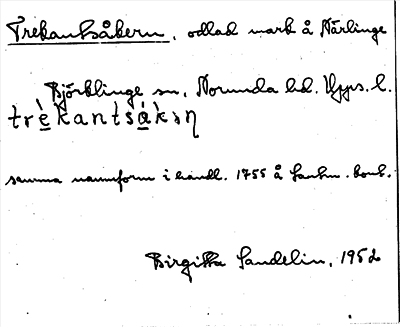 Trekantsåkern, odlad mark å Närlinge
Björklinge sn, Norunda hd. Upps. l.
trèkantsákən
samma namnform i handl. 1755 å Lantm. kont.
Birgitta Sandelin, 1952